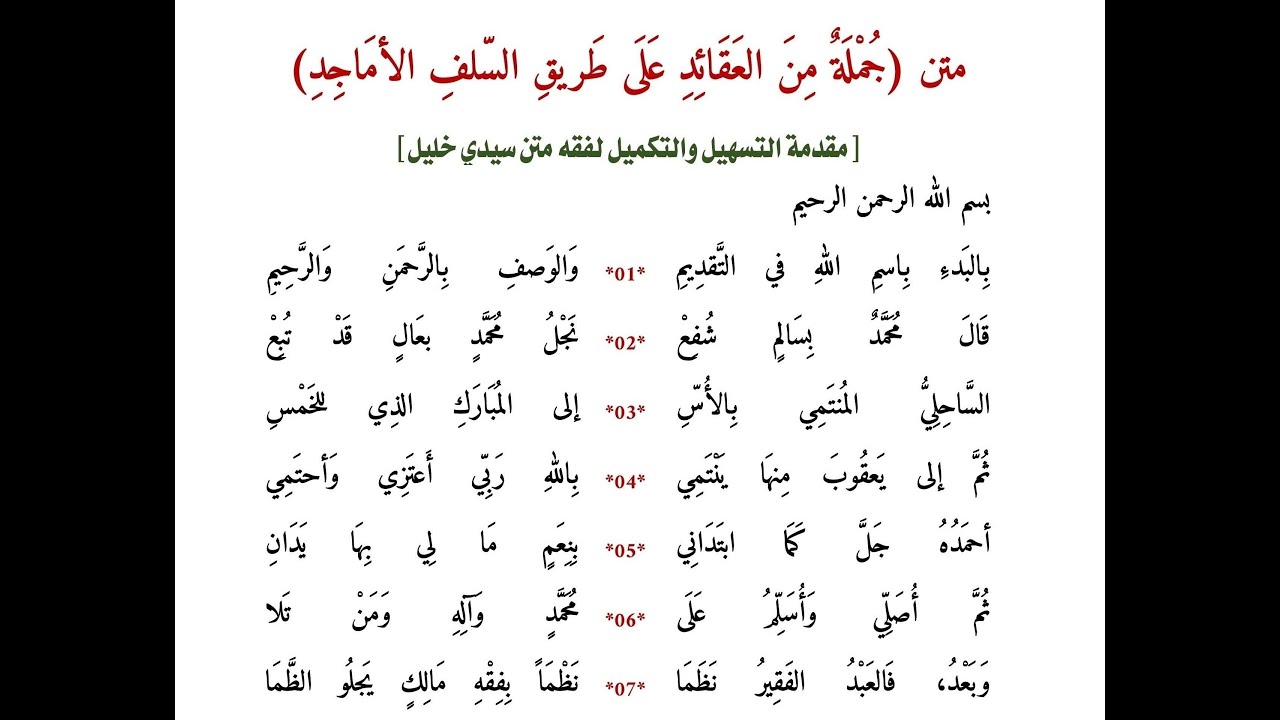 متن (جُمْلَةٌ مِنَ العَقَائِدِ عَلَى طَرِيقِ السّلفِ الأمَاجِدِ)
[مقدمة التسهيل والتكميل لفقه متن سيدي خليل]
بسم الله الرحمن الرحيم
بِالبَدءِ بِاسمِ اللهِ في التَّقدِيمِ *01* وَالوَصفِ بِالرَّحمَنِ وَالرَّحِيمِ
قَالَ مُحَمَّدٌ بِسَالِمٍ شُفِعْ *02* نَجْلُ مُحَمَّدٍ بعَالٍ قَدْ تُبِعْ
السَّاحِلِيُّ المُنتَمِي بِالأُسِّ *03* إلى المُبَارَكِ الذِي للخَمْسِ
ثُمَّ إلى يَعقُوبَ مِنهَا يَنْتَمِي *04* بِاللهِ رَبِّي أَعتَزِي وَأحتَمِي
أحمَدُهُ جَلَّ كَمَا ابتَدَانِي *05* بِنِعَمٍ مَا لِي بِهَا يَدَانِ
ثُمَّ أُصَلِّي وَأُسَلِّمُ عَلَى *06* مُحَمَّدٍ وَآلِهِ وَمَنْ تَلا
وَبَعْدُ، فَالعَبْدُ الفَقِيرُ نَظَمَا *07* نَظْمَاً بِفِقْهِ مَالِكٍ يَجلُو الظَّمَا